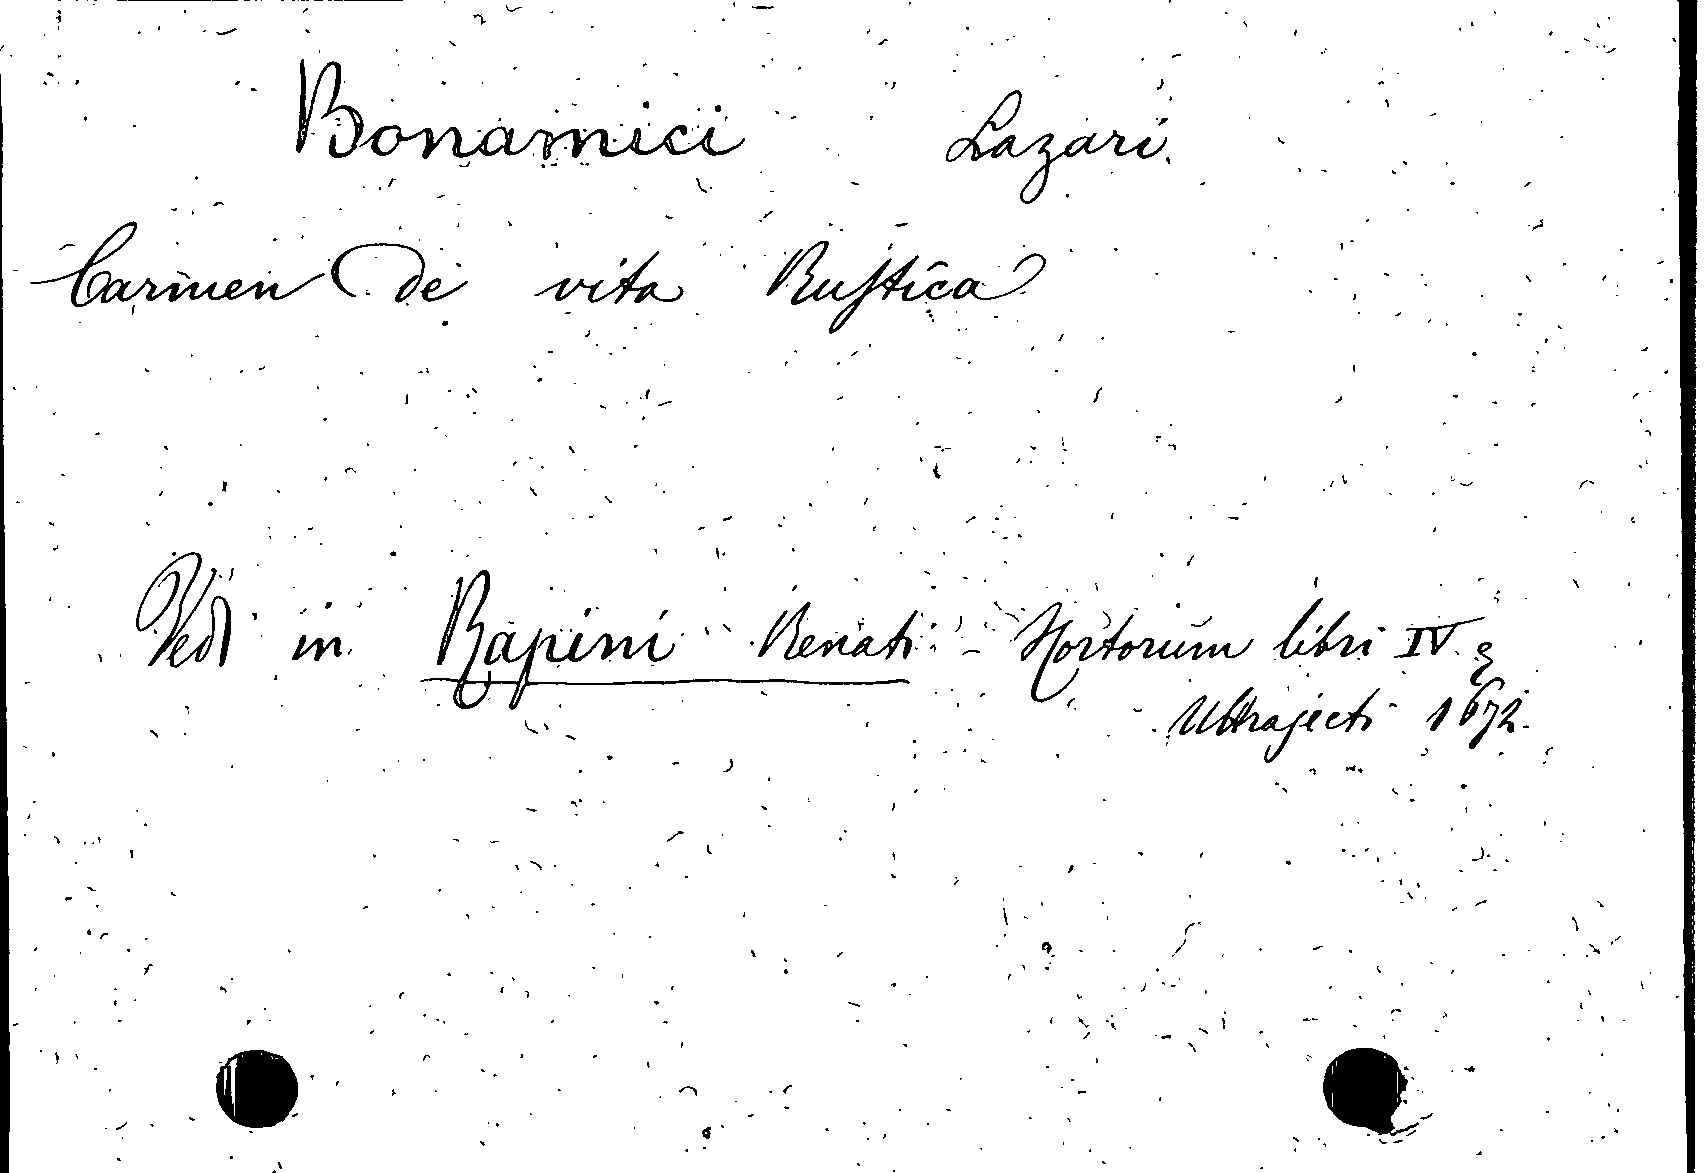 Bonamici Lazari.
Carmen de vita Rustica
Vedi in Rapini Renati - Hortorum libri IV.
Ultrajecti 1672.